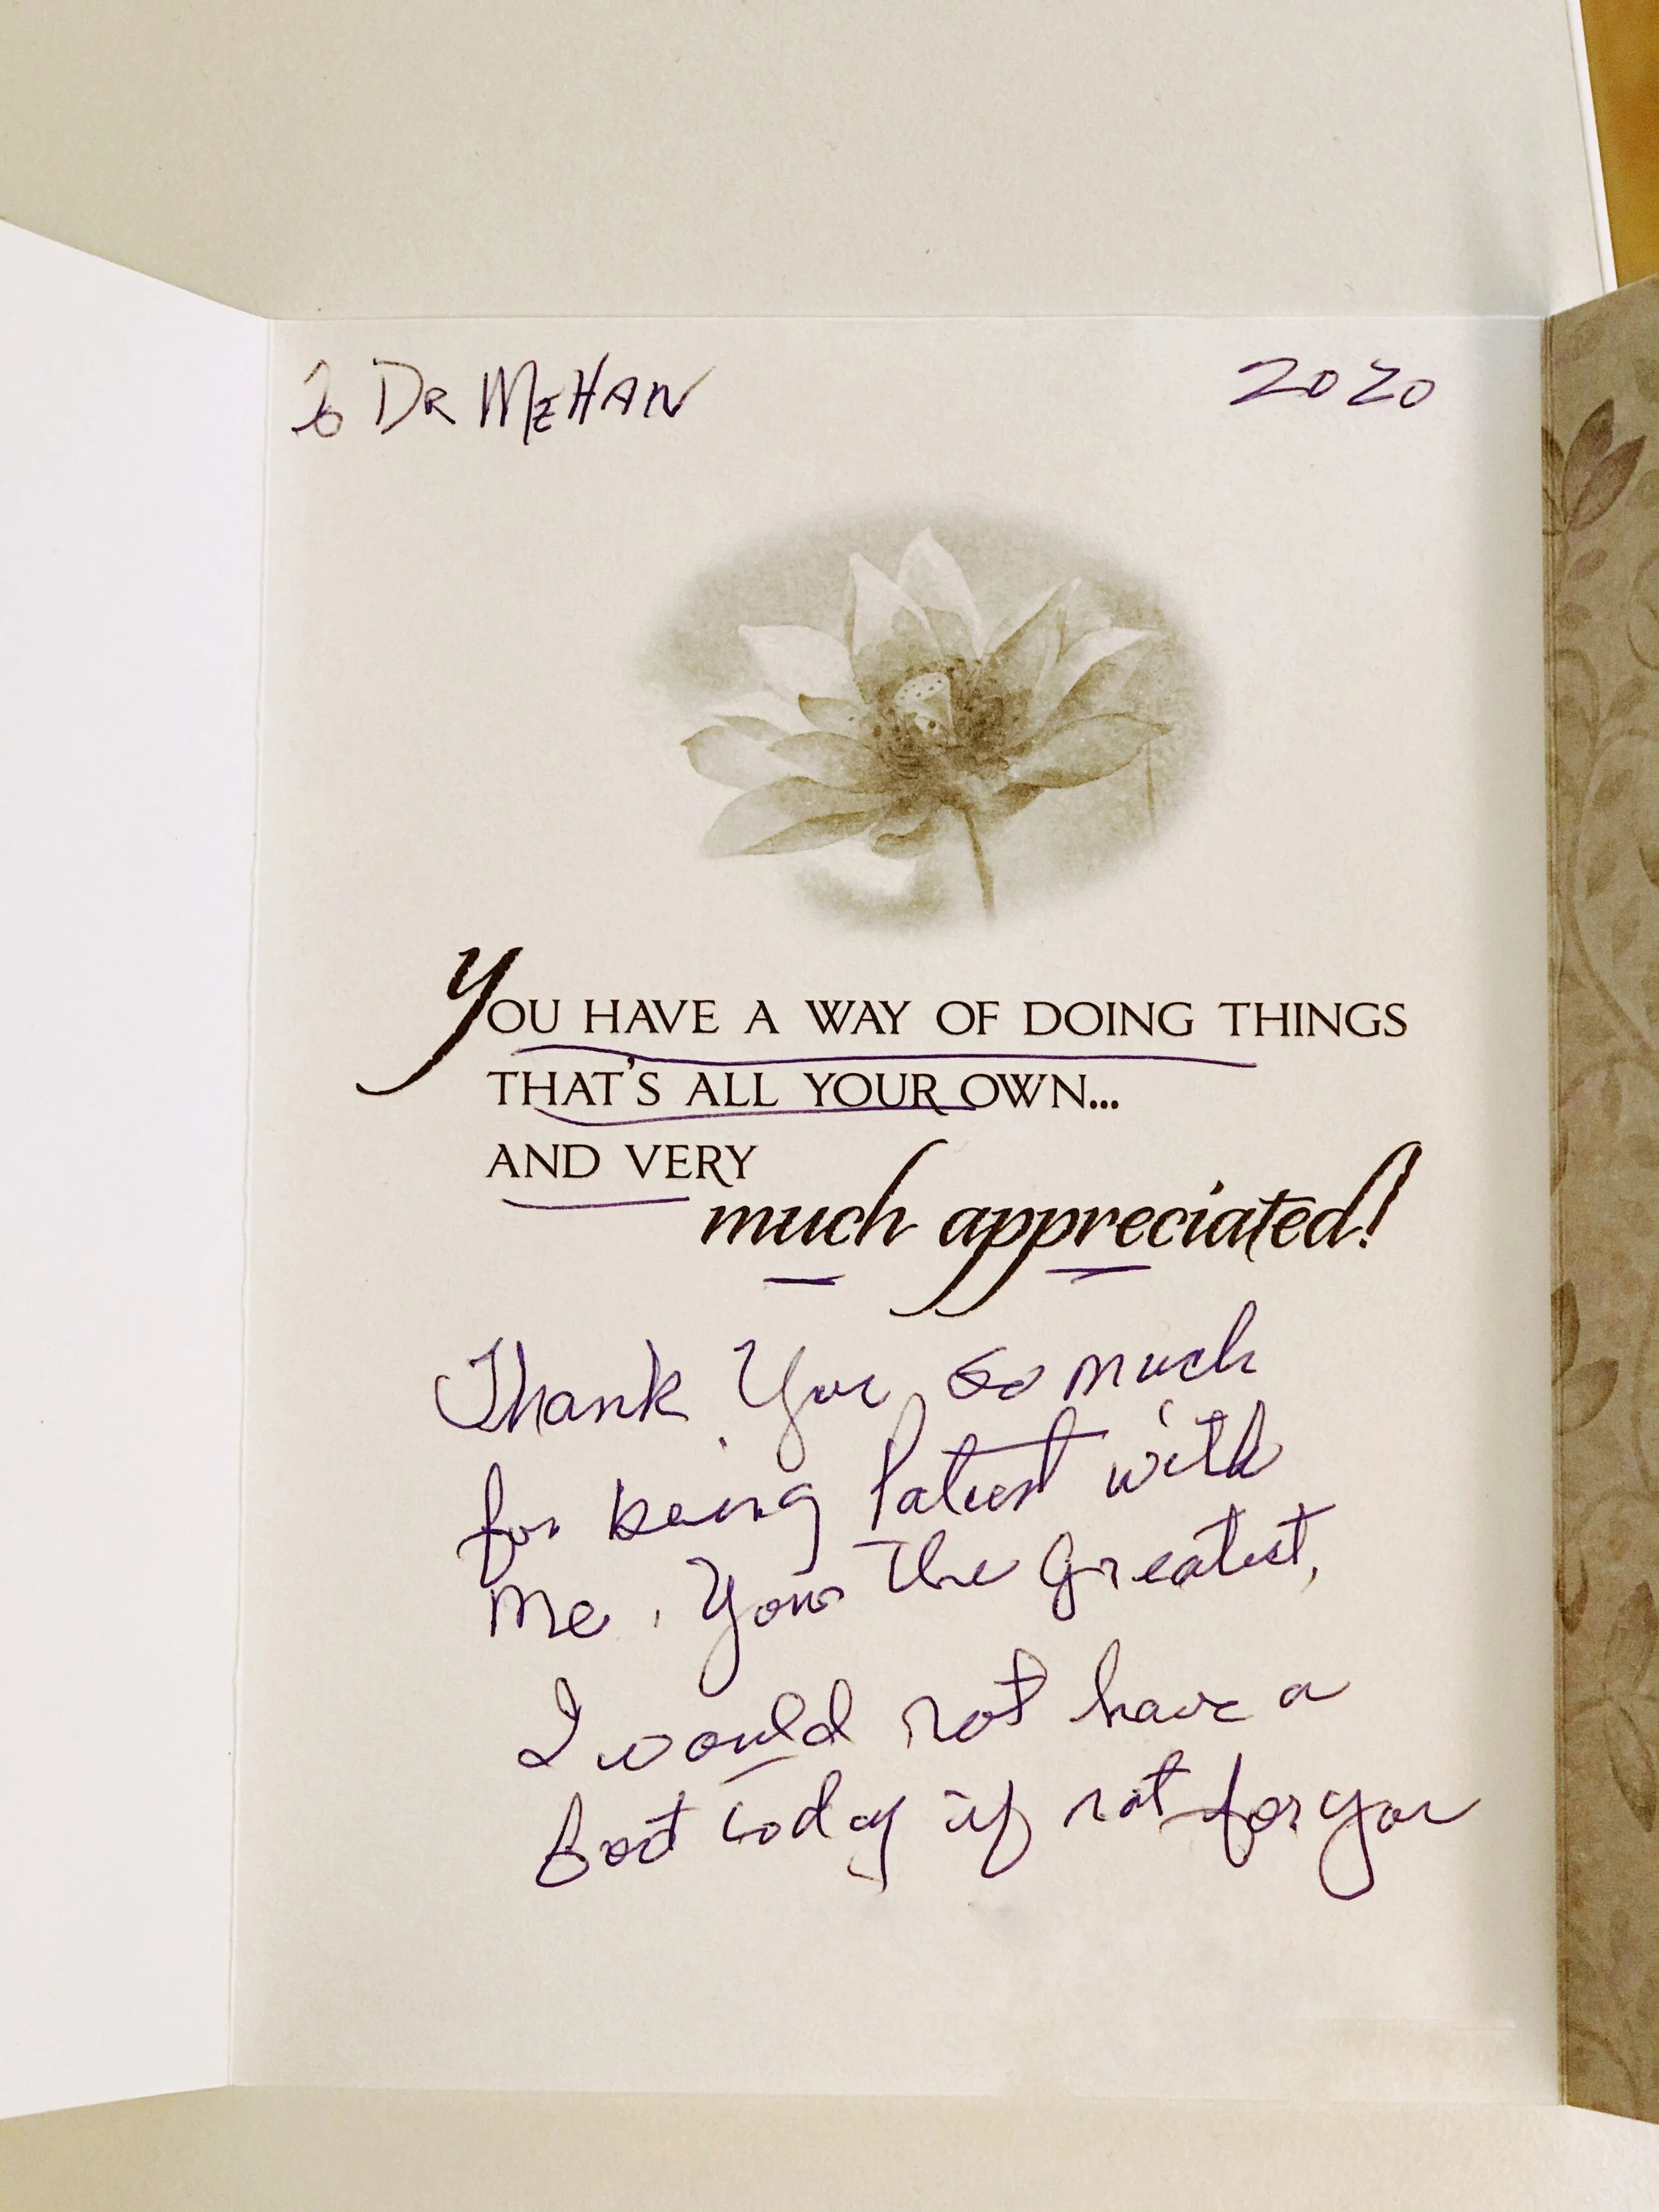 To DR MEHAN 2020
YOU HAVE A WAY OF DOING THINGS
THAT'S ALL YOUR OWN...
AND VERY
much appreciated!
Thank You so much
for being Patient with
Me. Your the Greatest,
I would not have a
foot today if not for you